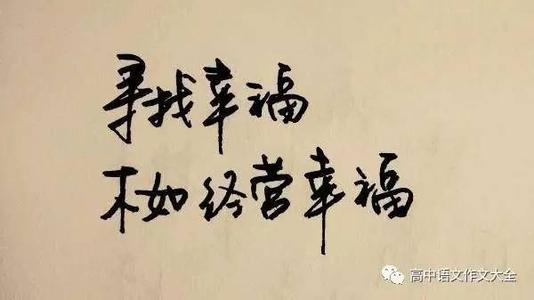 寻找幸福
不如经营幸福
高中语文作文大全